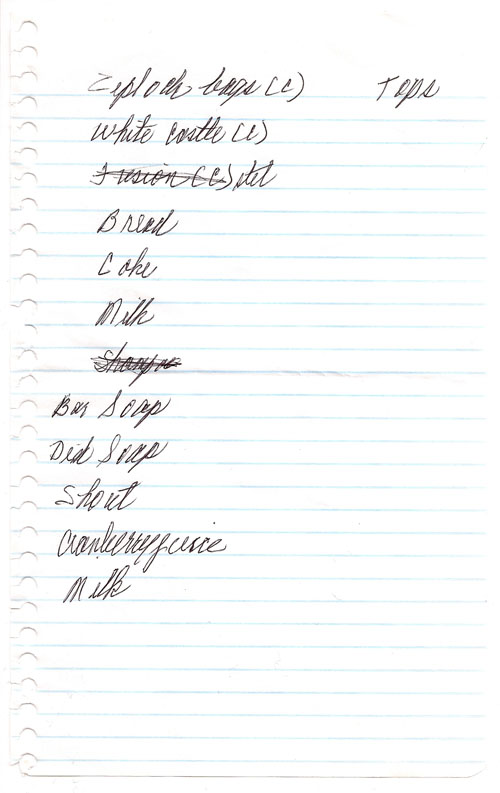 Ziplock bags (c) Tops
White Castle (c)
Fusion (c) del
Bread
Coke
Milk
Bar Soap
Dish Soap
Shout
Cranberry juice
Milk